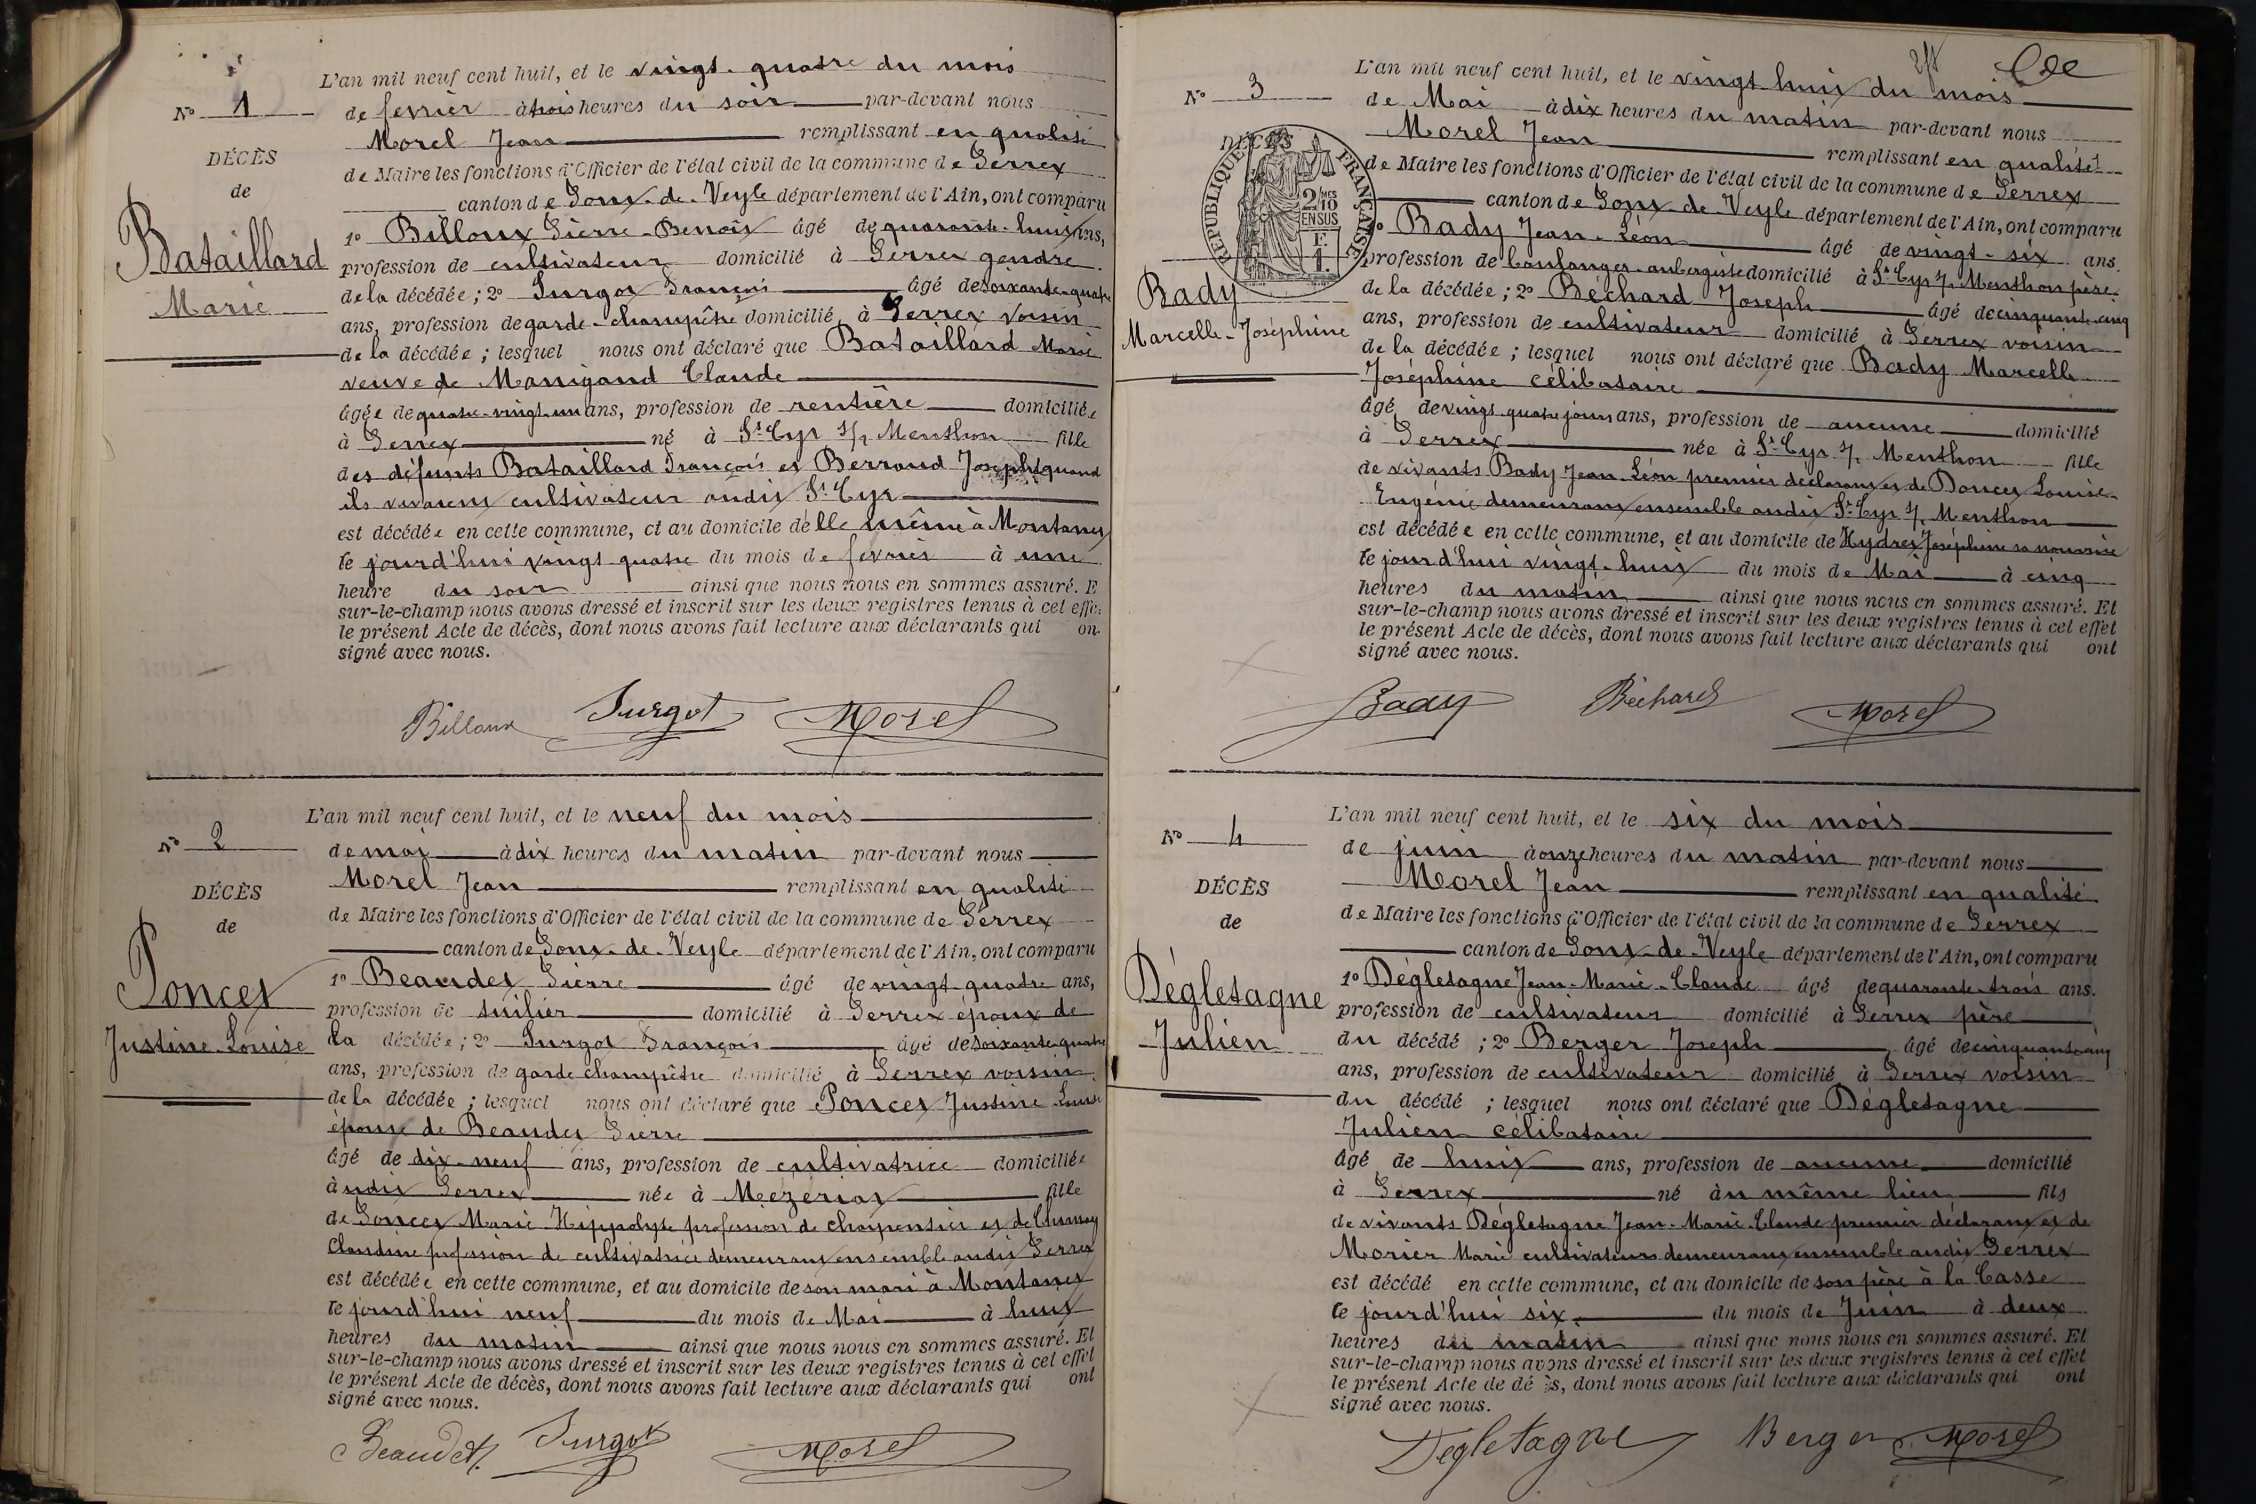 N° 1
DÉCÈS
de
Bataillard
Marie
L'an mil neuf cent huit, et le vingt-quatre du mois
de ferrier à trois heures du soir par-devant nous
Morel Jean remplissant en qualité
de Maire les fonctions d'Officier de l'état civil de la commune de Perrex
canton de Pont-de-Veyle département de l'Ain, ont comparu
1° Billoux Pierre-Benoît âgé de quarante-huit ans,
profession de cultivateur domicilié à Perrex gendre
de la décédée ; 2° Surgot François âgé de soixante-quatre
ans, profession de garde-champêtre domicilié à Perrex voisin
de la décédée ; lesquel nous ont déclaré que Bataillard Marie
veuve de Manigand Claude
âgée de quatre-vingt-un ans, profession de rentière domiciliée
à Perrex né à St Cyr s/ Menthon fille
des défunts Bataillard François et Berraud Joseph quand
ils vivaient cultivateur audit St Cyr
est décédée en cette commune, et au domicile d'elle même à Montanet
le jourd'hui vingt-quatre du mois de fevrier à une
heure du soir ainsi que nous nous en sommes assuré. E
sur-le-champ nous avons dressé et inscrit sur les deux registres tenus à cet effe
le présent Acte de décès, dont nous avons fait lecture aux déclarants qui on
signé avec nous.
Billoux Surgot Morel
N° 2
DÉCÈS
de
Poncet
Justine-Louise
L'an mil neuf cent huit, et le neuf du mois
de mai à dix heures du matin par-devant nous
Morel Jean remplissant en qualité
de Maire les fonctions d'Officier de l'état civil de la commune de Perrex
canton de Pont-de-Veyle département de l'Ain, ont comparu
1° Beaudet Pierre âgé de vingt-quatre ans,
profession de tuilier domicilié à Perrex époux de
la décédée ; 2° Surgot François âgé de soixante-quatre
ans, profession de garde champêtre domicilié à Perrex voisin
de la décédée ; lesquel nous ont déclaré que Poncet Justine Louise
épouse de Beaudet Pierre
âgé de dix-neuf ans, profession de cultivatrice domiciliée
à udit Perrex née à Mézériat fille
de Poncet Marie Hippolyte profession de charpentier et de
Claudine profession de cultivatrice demeurant ensemble audit Perrex
est décédée en cette commune, et au domicile de son mari à Montanet
le jourd'hui neuf du mois de Mai à huit
heures du matin ainsi que nous nous en sommes assuré. Et
sur-le-champ nous avons dressé et inscrit sur les deux registres tenus à cet effet
le présent Acte de décès, dont nous avons fait lecture aux déclarants qui ont
signé avec nous.
Beaudet Surgot Morel
N° 3
DÉCÈS
RÉPUBLIQUE FRANÇAISE
2/10 EN SUS
Bady
Marcelle-Joséphine
L'an mil neuf cent huit, et le vingt-huit du mois
de Mai à dix heures du matin par-devant nous
Morel Jean remplissant en qualité
de Maire les fonctions d'Officier de l'état civil de la commune de Perrex
canton de Pont-de-Veyle département de l'Ain, ont comparu
1° Bady Jean-Léon âgé de vingt-six ans,
profession de boulanger-aubergiste domicilié à St Cyr s/ Menthon père
de la décédée ; 2° Bechard Joseph âgé de cinquante-cinq
ans, profession de cultivateur domicilié à Perrex voisin
de la décédée ; lesquel nous ont déclaré que Bady Marcelle
Joséphine célibataire
âgé de vingt-quatre jours ans, profession de aucune domicilié
à Perrex née à St Cyr s/ Menthon fille
de vivants Bady Jean-Léon premier déclarant et de Poncet Louise-
Eugénie demeurant ensemble audit St Cyr s/ Menthon
est décédée en cette commune, et au domicile de Joséphine sa nourrice
le jourd'hui vingt-huit du mois de Mai à cinq
heures du matin ainsi que nous nous en sommes assuré. Et
sur-le-champ nous avons dressé et inscrit sur les deux registres tenus à cet effet
le présent Acte de décès, dont nous avons fait lecture aux déclarants qui ont
signé avec nous.
Bady Béchard Morel
N° 4
DÉCÈS
de
Dégletagne
Julien
L'an mil neuf cent huit, et le six du mois
de juin à onze heures du matin par-devant nous
Morel Jean remplissant en qualité
de Maire les fonctions d'Officier de l'état civil de la commune de Perrex
canton de Pont-de-Veyle département de l'Ain, ont comparu
1° Dégletagne Jean-Marie-Claude âgé de quarante-trois ans.
profession de cultivateur domicilié à Perrex père
du décédé ; 2° Berger Joseph âgé de cinquante-cinq
ans, profession de cultivateur domicilié à Perrex voisin
du décédé ; lesquel nous ont déclaré que Dégletagne
Julien célibataire
âgé de huit ans, profession de aucune domicilié
à Perrex né àu même lieu fils
de vivants Dégletagne Jean-Marie-Claude premier déclarant et de
Morier Marie cultivateurs demeurant ensemble audit Perrex
est décédé en cette commune, et au domicile de son père à la Casse
le jourd'hui six du mois de Juin à deux
heures du matin ainsi que nous nous en sommes assuré. Et
sur-le-champ nous avons dressé et inscrit sur les deux registres tenus à cet effet
le présent Acte de dé ès, dont nous avons fait lecture aux déclarants qui ont
signé avec nous.
Dégletagne Berger Morel